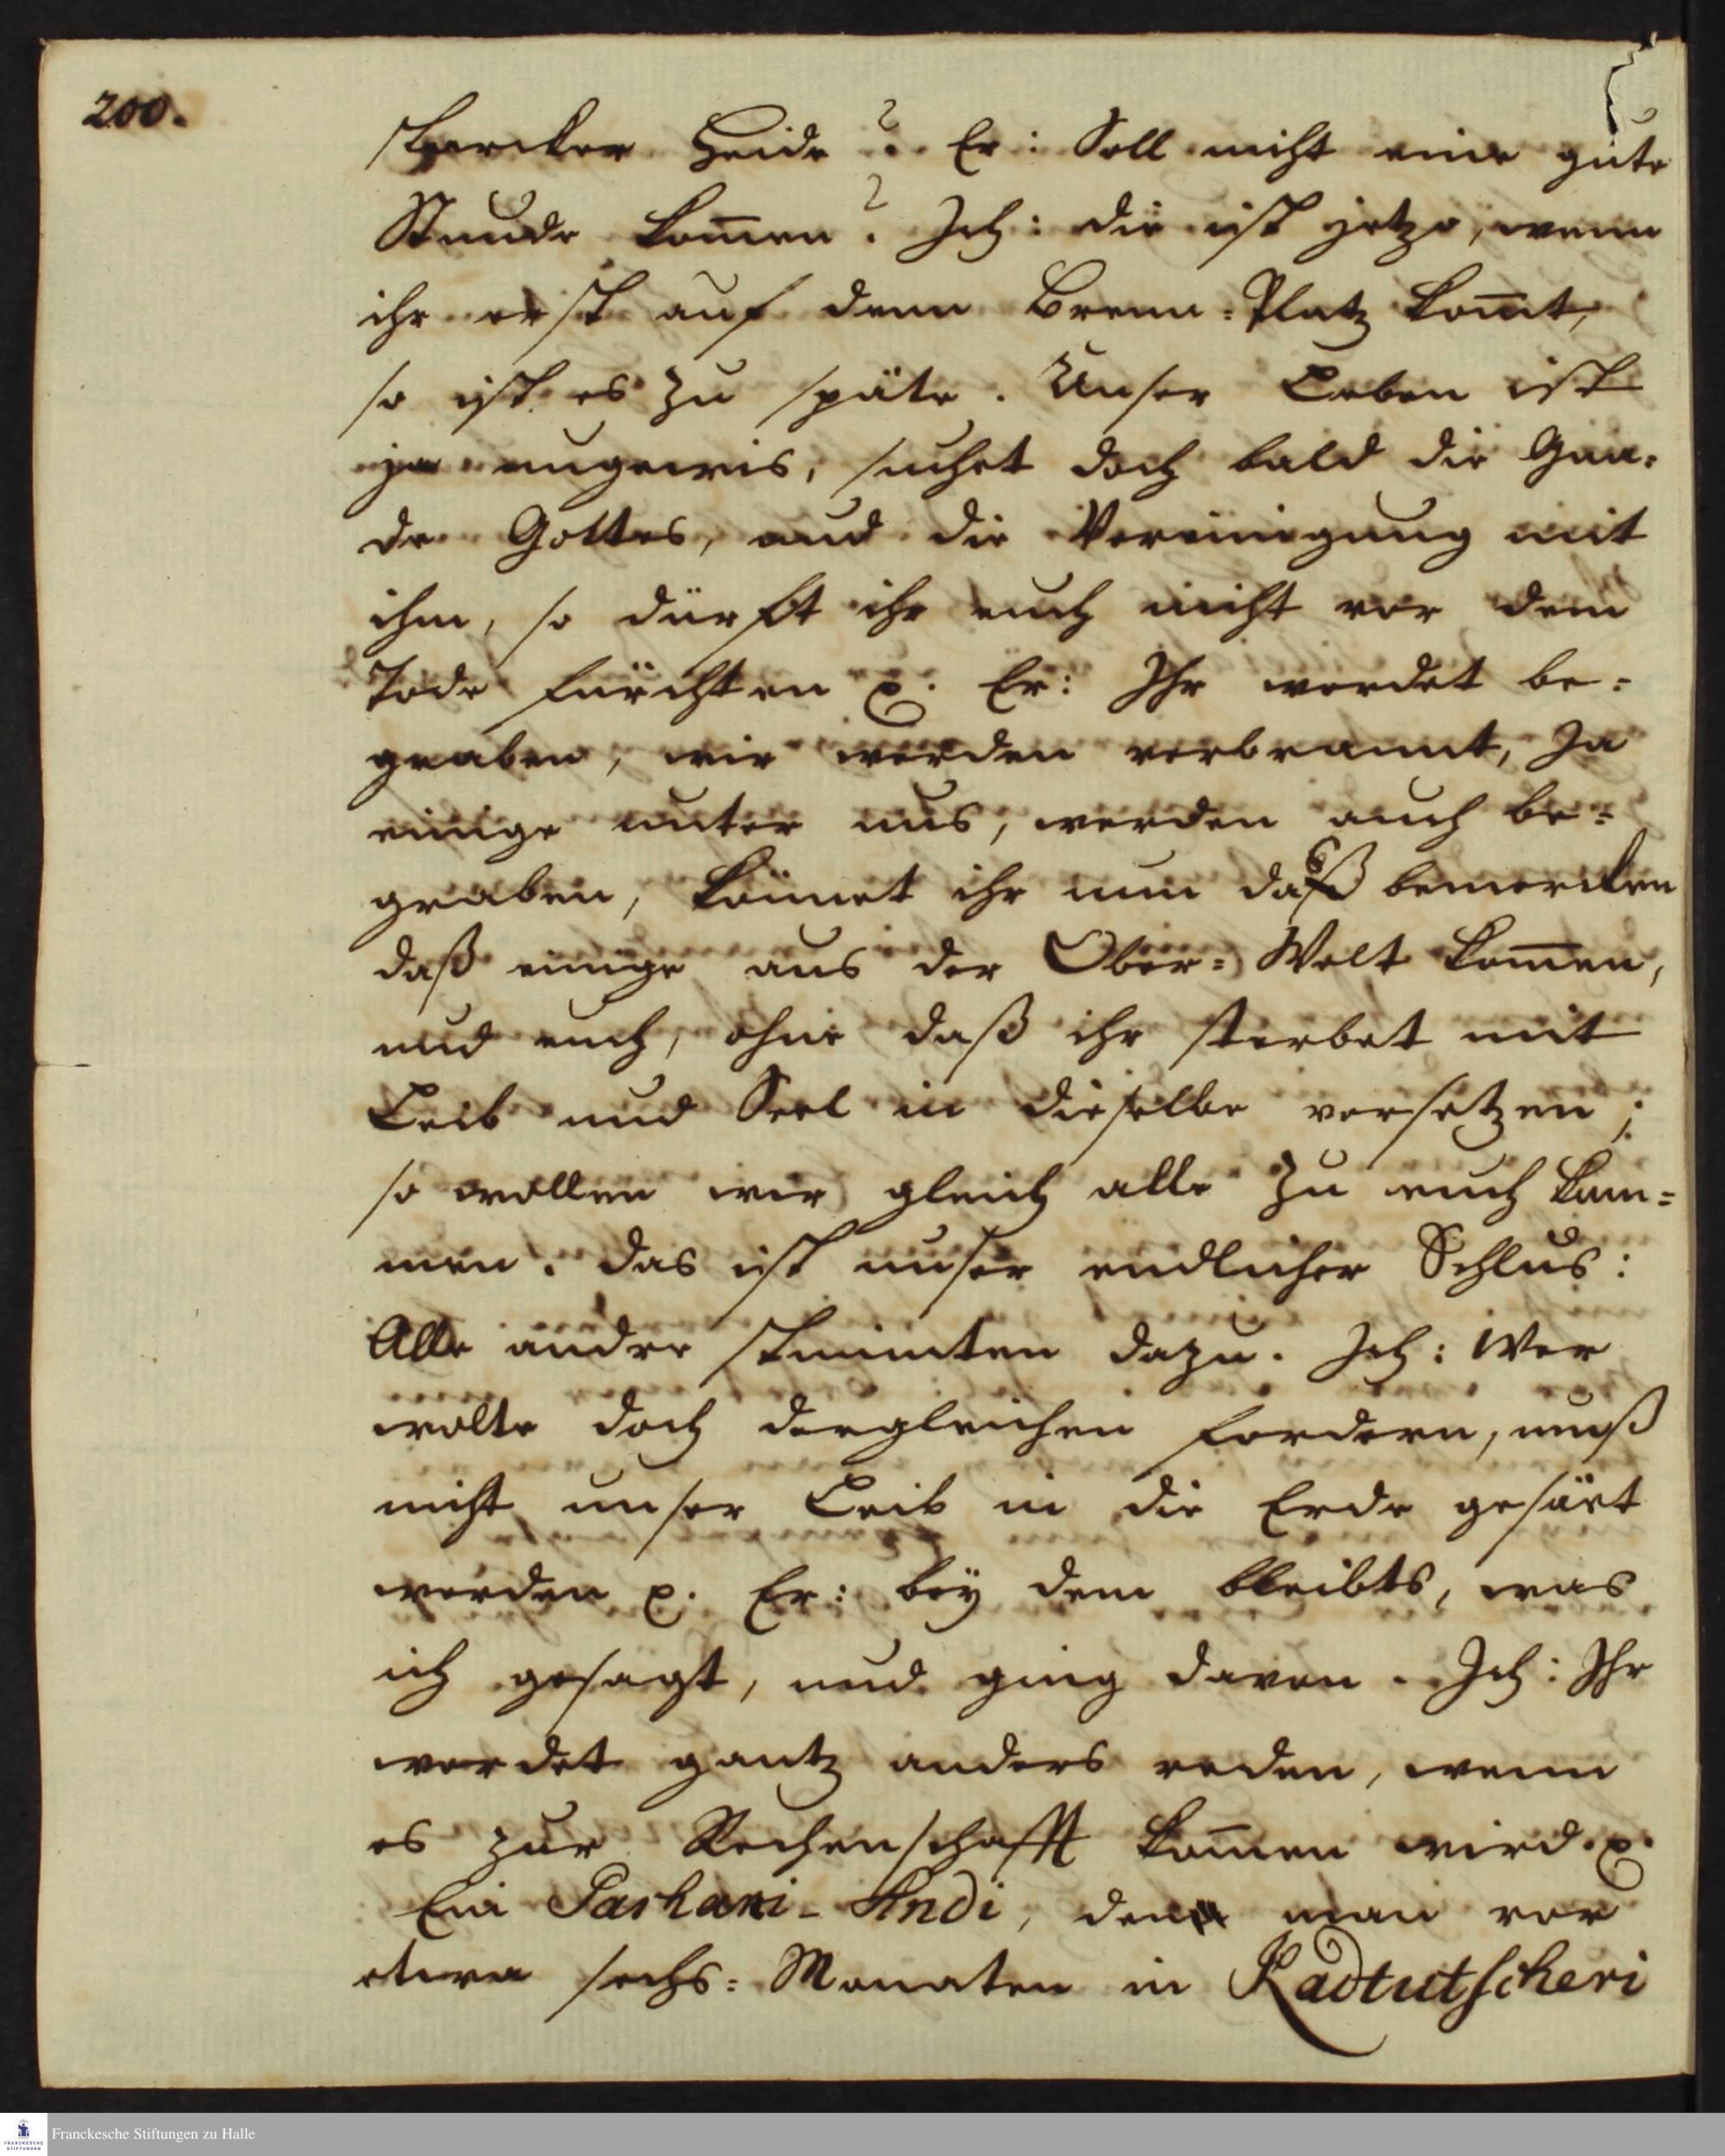 200.
starcker Heide? Er: Soll nicht eine gute
Stunde kom̄en? Ich: die ist jetzo, wenn
ihr erst auf denn Brenn-Platz kom̄t,
so ist es zu späte. Unser Leben ist
ja ungewis, suchet doch bald die Gna-
de Gottes, und die Vereinigung mit
ihm, so dürft ihr euch nicht vor dem
Tode fürchten p. Er: Ihr werdet be-
graben, wir werden verbrannt, Ja
einige unter uns, werden auch be-
graben, könnet ihr nun daß bemercken
daß einige aus der Ober-Welt kom̄en,
und euch, ohne daß ihr sterbet mit
Leib und Seel in dieselbe versetzen;
so wollen wir gleich alle zu euch kom-
men. das ist unser endlicher Schlus:
Alle andre stimmten dazu. Ich: Wer
wolte doch dergleichen fordern, muß
nicht unser Leib in die Erde gesäet
werden p. Er: bey dem bleibts, was
ich gesagt, und ging davon. Ich: Ihr
werdet gantz anders reden, wenn
es zur Rechenschafft kom̄en wird. p.
Ein Parhani-Andi, den man vor
etwa sechs-Monaten in Kadtutscheri
Franckesche Stiftungen zu Halle